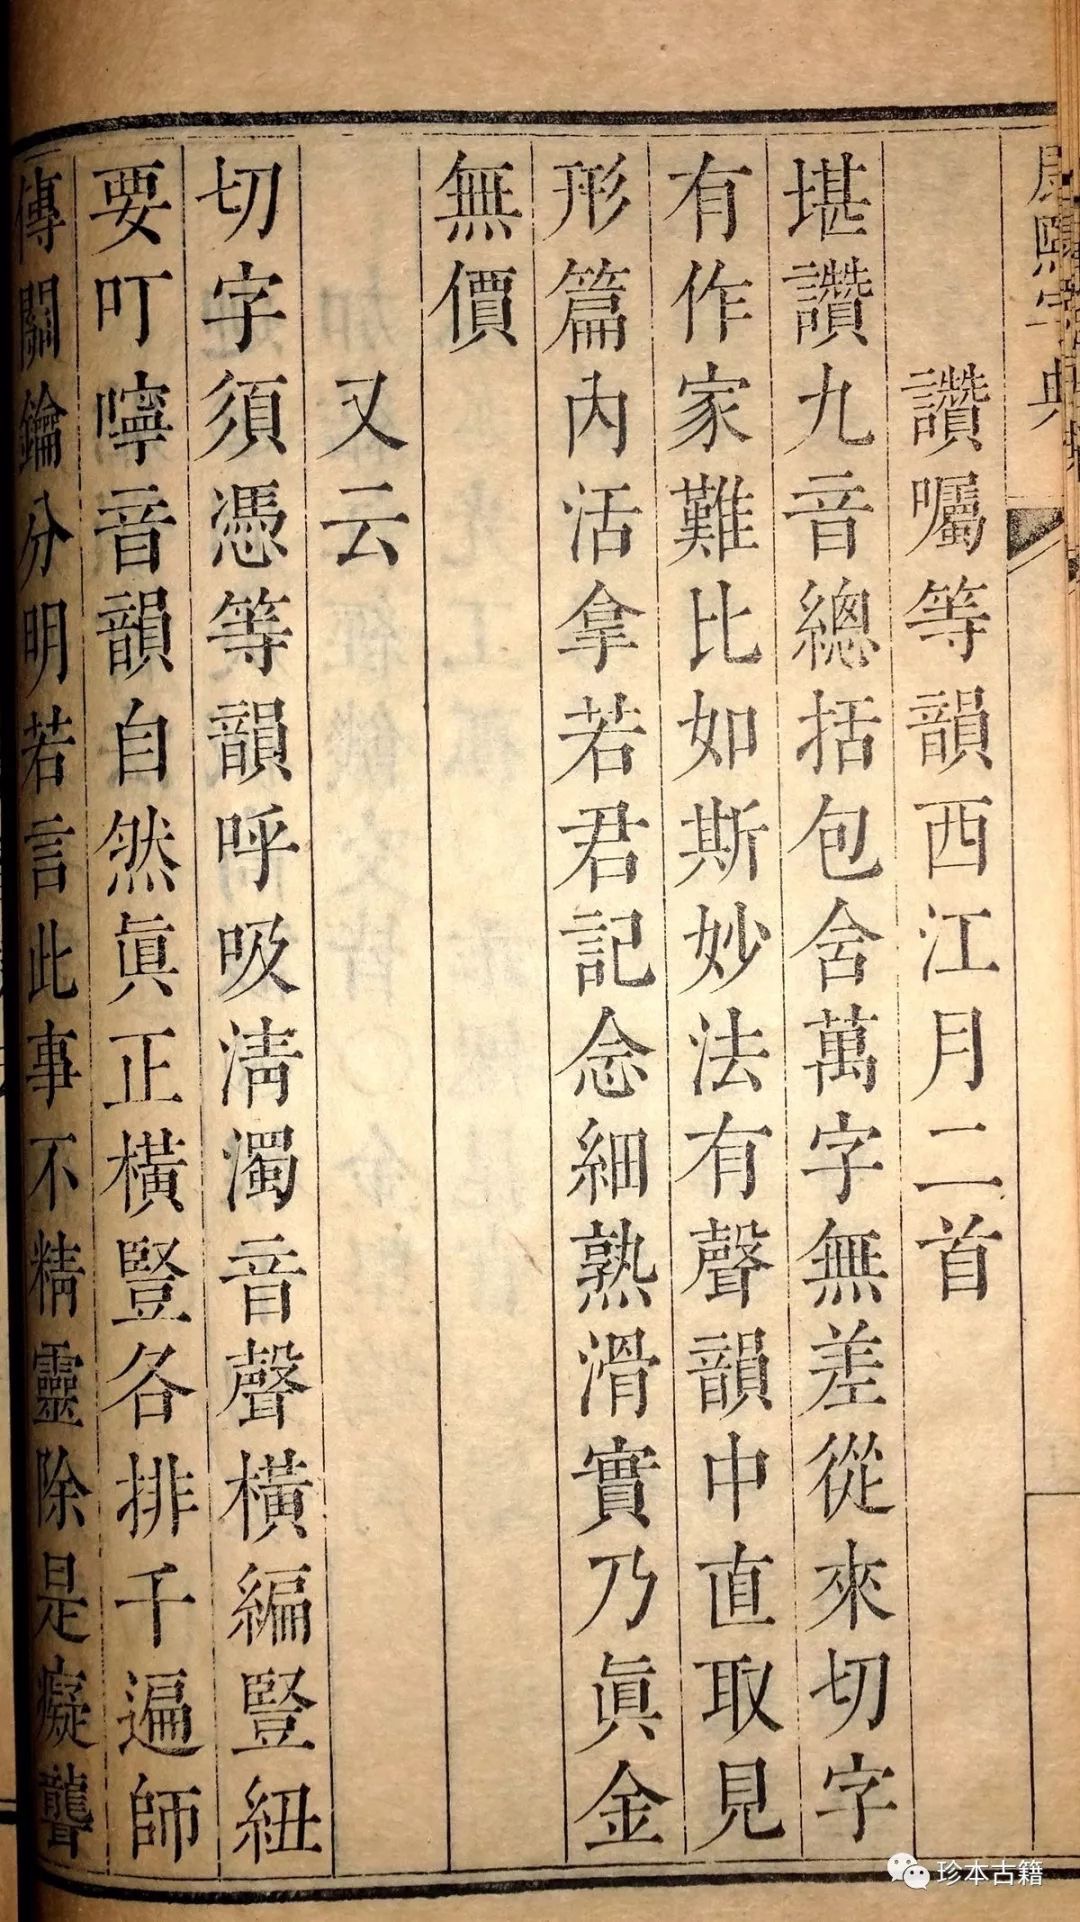 康熙字典
讚囑等韻西江月二首
堪讚九音總括包含萬字無差從來切字
有作家難比如斯妙法有聲韻中直取見
形篇內活拿若君記念細熟滑實乃眞金
無價
又云
切字須憑等韻呼吸清濁音聲橫編豎紐
要叮嚀音韻自然眞正橫豎各排千遍師
傳關鑰分明若言此事不精靈除是癡聾
珍本古籍